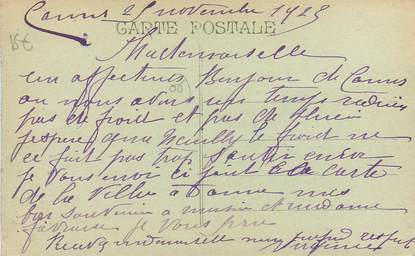 Cannes 25 novembre 1923
15€
CARTE POSTALE
Mademoiselle
un affectueux Bonjour de Cannes
ou nous avons un temps
pas de froid et pas de pluie
jespere qua Neuilly le froid ne
ce fait pas trop Sentir encor
je vous envoi ci joint la carte
de la Ville donné mes
bon Souvenir a et madame
je vous prie
Recevez mademoiselle mon respect